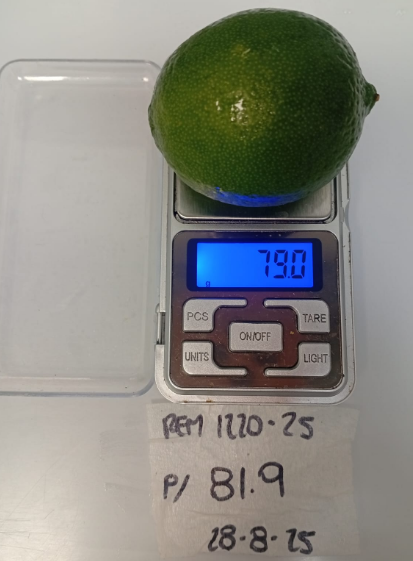 79.0
g
PCS
TARE
ON/OFF
UNITS
LIGHT
REM 1220-25
P/ 81.9
28-8-25